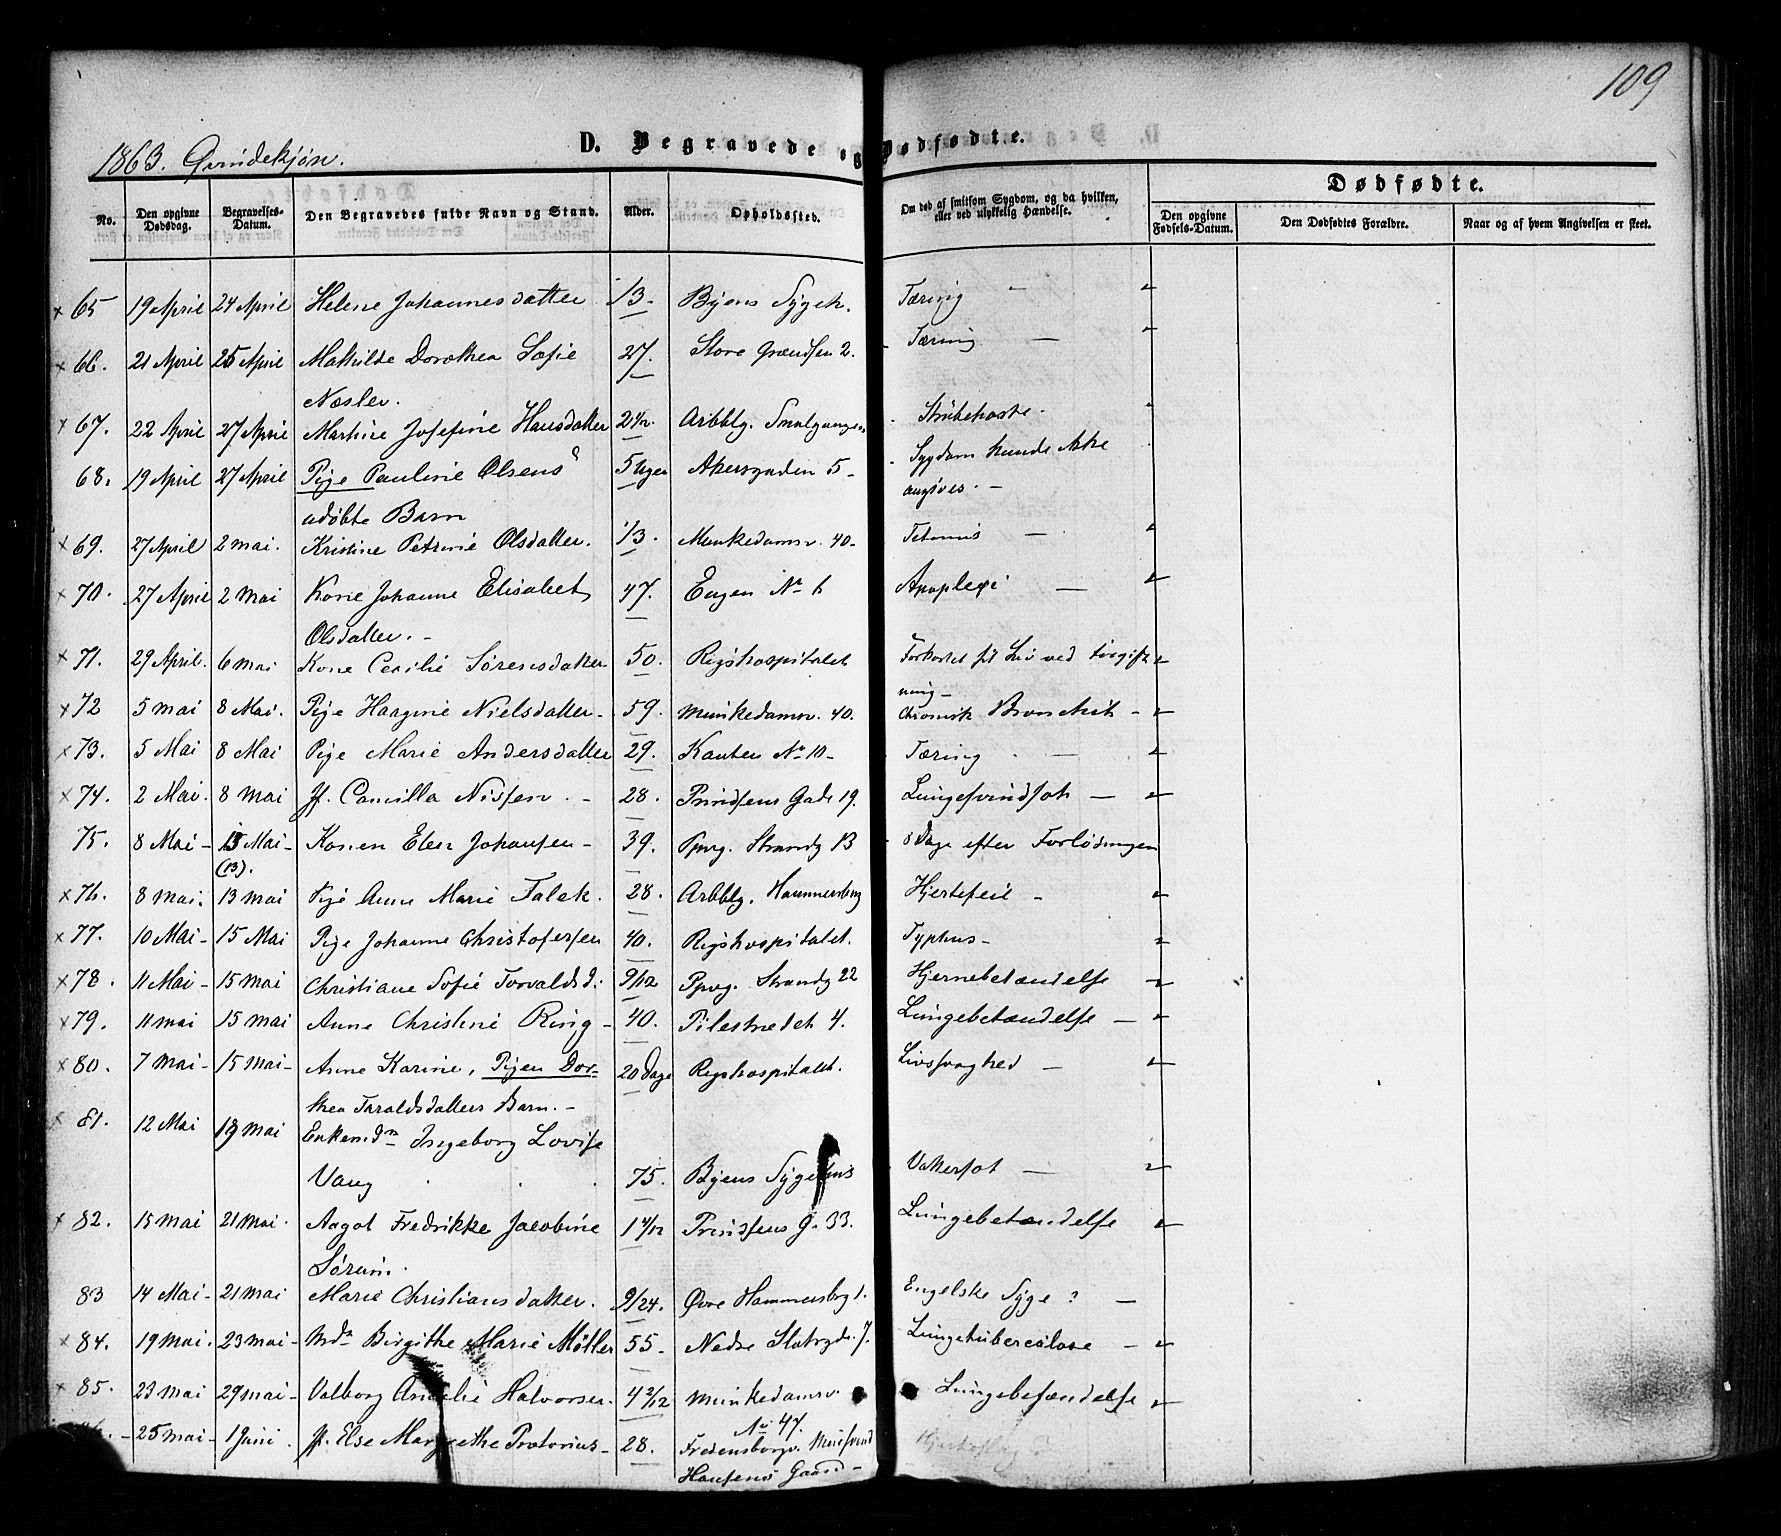 109
1863. Qvindekjøn.
D. Begravede og Dødfødte.
No. Den opgivne Dødsdag. Begravelses-Datum. Den Begravedes fulde Navn og Stand. Alder. Opholdssted. Om død af smitsom Sygdom, og da hvilken, eller ved ulykkelig Hændelse.
Dødfødte.
Den opgivne Fødsels-Datum. Den Dødfødtes Forældre. Naar og af hvem Angivelsen er skeet.
× 65 19 April 24 April Helene Johannesdatter 1/3 - Byens Sygeh. Tæring -
× 66. 21 April 25 April Mathilde Dorothea Sofie 27. Store Grændsen 2. Tæring -
Næsler.
× 67. 22 April 27 April Marthine Josefine Hansdatter 2 1/12. Arbblg. Smalgangen Strubehoste -
68. 19 April 27 April Pige Pauline Olsens 5 Uger Akersgaden 5 - Sygdom kunde ikke
udøbte Barn angives. -
× 69. 27 April 2 Mai. Kristine Petrine Olsdatter. 1/3. Munkedamsv. 40 - Tetanus -
× 70. 27 April 2 Mai Kone Johanne Elisabet 47. Engen No 6 Apoplexi -
Olsdatter. -
× 71. 29 April. 6 Mai Kone Cecilie Sørensdatter 50. Rigshospitalet Forkortet sit Liv ved Forgift
ning -
× 72 5 Mai 8 Mai. Pige Haagine Nielsdatter - 59. Munkedamsv. 40. Chronisk Bronchit -
× 73. 5 Mai 8 Mai Pige Marie Andersdatter 29. Kanten No 10 - Tæring -
× 74. 2 Mai. 8 Mai Jf. Camilla Nissen. - 28. Prindsens Gade 19. Lungesvindsot -
75. 8 Mai - 13 Mai - Karen Elen Johansen - 39. Ppvg. Strandg 13 8 Dage efter Forløsningen
(13).
× 76. 8 Mai. 13 Mai Pige Anne Marie Falck. 28. Arbblg. Hammersborg Hjertefeil -
× 77. 10 Mai - 15 Mai Pige Johanne Christofersen 40. Rigshospitalet. Typhus -
× 78. 11 Mai - 15 Mai Christiane Sofie Torvaldsd. 9/12 Ppvg. Strandg 22 Hjernebetændelse -
× 79. 11 Mai 15 Mai Anne Christine Ring - 40. Pilestrædet 4. Lungebetændelse -
× 80. 7 Mai - 15 Mai - Anne Karine, Pigen Dor- 20 Dage Rigshospitalet. Livssvaghed -
thea Taraldsdatters Barn. -
× 81. 12 Mai 19 Mai Enkemdm Ingeborg Lovise
Vang 75. Byens Sygehus Vattersot -
× 82. 15 Mai 21 Mai. Aagot Fredrikke Jacobine 1 4/12 Prindsens G. 33. Lungebetændelse
Sørum.
83 14 Mai - 21 Mai Marie Christiansdatter. 9/24. Øvre Hammersborg 1. Engelske Syge? -
× 84. 19 Mai. 23 Mai - Mdm Birgithe Marie Møller 55 - Nedre Slotsgd. 7. Lungetuberculose -
× 85. 23 Mai 29 Mai - Valborg Amalie Halvorsen. 4 2/12 Munkedamsv. Lungebetændelse
No 47.
- 25 Mai - 1 Juni. Jf. Else Margrethe Prætorius - 28. Fredensborgv.
Hansens Gaard -